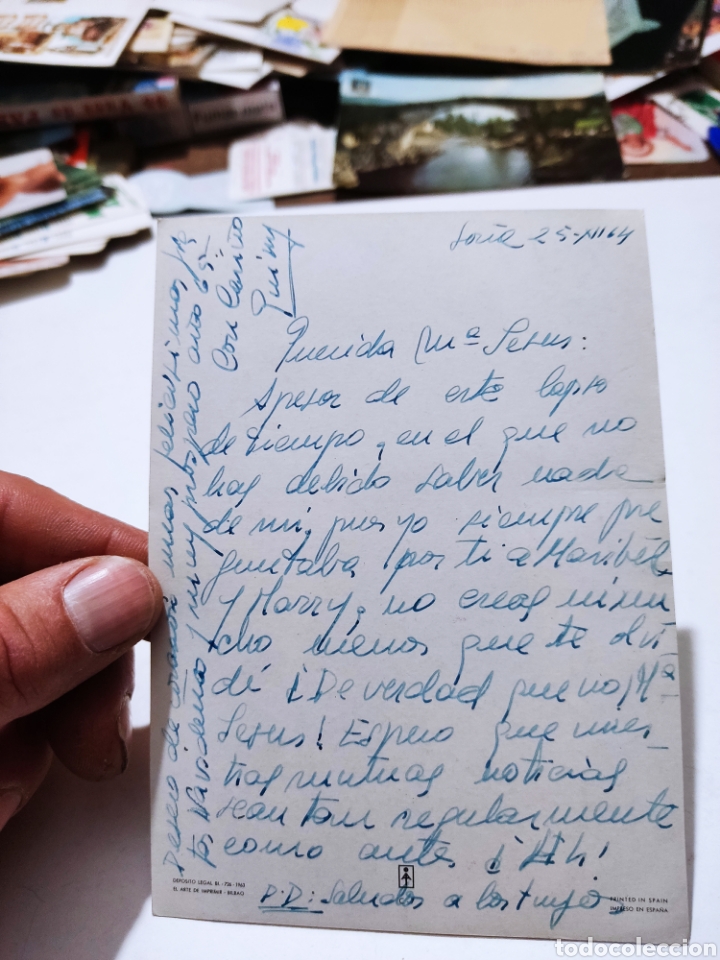 Soria 25-XI-64
Querida Mª Jesus:
Apesar de este lapso
de tiempo, en el que no
has debido saber nada
de mi, pues yo siempre pre
guntaba por ti a Maribel
y Marry, no creas ni mu
cho menos que te olvi
dé ¡De verdad que no, Mª
Jesus! Espero que nues
tras mutuas noticias
sean tan regularmente
como antes
P.D: Saludos a los tuyos
Deseo de corazón unas felicisimas
Navidades y muy prospero año 65.
Con Cariño
DEPOSITO LEGAL BI.-756-1963
EL ARTE DE IMPRIMIR - BILBAO
PRINTED IN SPAIN
IMPRESO EN ESPAÑA
todocoleccion.net